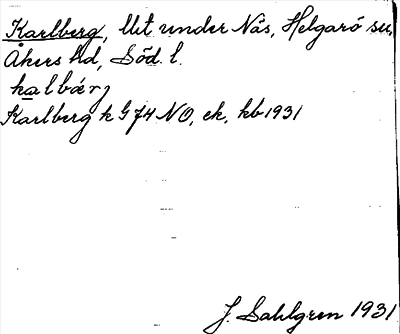 Karlberg, lht under Näs, Helgarö sn,
Åkers hd, Söd. l.
kalbærj
Karlberg k G 74 NO, ek, kb 1931
J. Sahlgren 1931